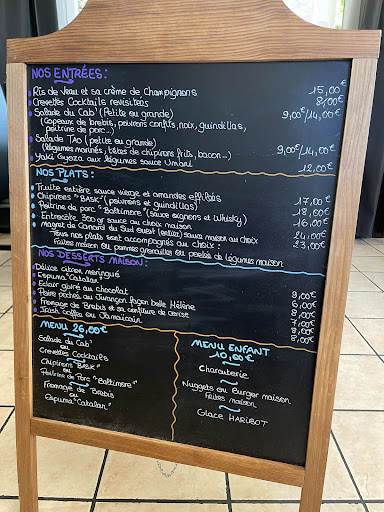 NOS ENTRÉES:
Ris de veau et sa crème de Champignons 15,00€
Crevettes Cocktails revisitées 8,00€
Salade du Cab' (Petite ou grande) 9,00€/14,00€
(Copeaux de brebis, poivrons confits, noix, guindillas,
poitrine de porc...)
Salade TAO (petite ou grande) 9,00€/14,00€
(légumes marinés, bêtes de chipirons frits, bacon...)
Yaki Gyoza aux légumes sauce Umani 12,00€
NOS PLATS:
Truite entière sauce vierge et amandes effilées 17,00€
Chipirons "BASK" (poivrons et guindillas) 18,00€
Poitrine de porc "Baltimore" (sauce oignons et Whisky) 16,00€
Entrecôte 300gr sauce au choix maison 24,00€
Magret de Canard du Sud ouest (entier) sauce maison au choix 23,00€
Tous nos plats sont accompagnés au choix:
Frites maison ou pommes grenailles ou poêlée de légumes maison
NOS DESSERTS MAISON:
Délice citron meringué 9,00€
Espuma "Catalan" 6,00€
Eclair givré au chocolat 8,00€
Poire pochée au Jurançon façon belle Hélène 8,00€
Fromage de Brebis et sa confiture de cerise 7,00€
Irish coffee ou Jamaïcain 8,00€
8,00€
MENU 26,00€
Salade du Cab'
ou
Crevettes Cocktails
Chipirons "BASK"
ou
Poitrine de Porc "Baltimore"
Fromage de Brebis
ou
Espuma "Catalan"
MENU ENFANT
10,00€
Charcuterie
Nuggets ou Burger maison
Frites maison
Glace HARIBOT